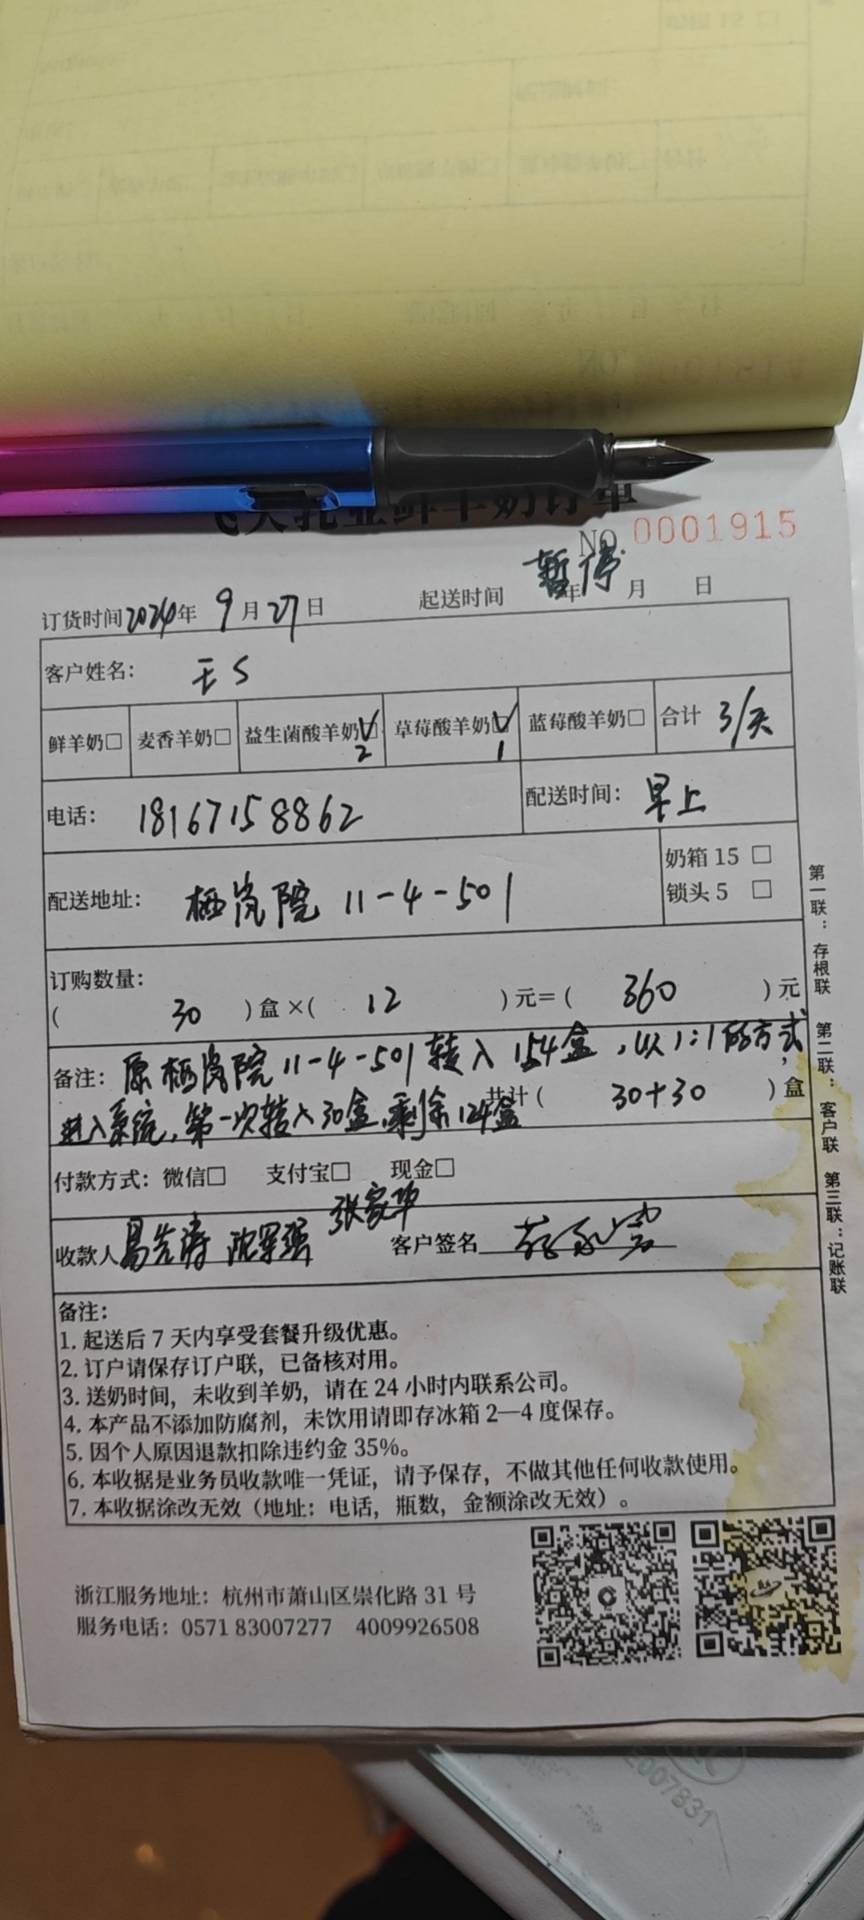 天乳业鲜羊奶订单
NO 0001915
订货时间2024年 9月27日 起送时间 暂停 年 月 日
客户姓名: 王S
鲜羊奶□ 麦香羊奶□ 益生菌酸羊奶☑ 2 草莓酸羊奶☑ 1 蓝莓酸羊奶□ 合计 3/天
电话: 18167158862 配送时间: 早上
配送地址: 栖岚院 11-4-501 奶箱 15 □
锁头 5 □
订购数量:
( 30 ) 盒 ×( 12 ) 元= ( 360 ) 元
备注: 原栖岚院11-4-501转入154盒,以1:1的方式
进入系统,第一次转入30盒,剩余124盒 共计 ( 30+30 ) 盒
付款方式: 微信□ 支付宝□ 现金□
收款人 易先涛 沈军强 张家华 客户签名
备注:
1. 起送后 7 天内享受套餐升级优惠。
2. 订户请保存订户联,已备核对用。
3. 送奶时间,未收到羊奶,请在 24 小时内联系公司。
4. 本产品不添加防腐剂,未饮用请即存冰箱 2—4 度保存。
5. 因个人原因退款扣除违约金 35%。
6. 本收据是业务员收款唯一凭证,请予保存,不做其他任何收款使用。
7. 本收据涂改无效(地址: 电话, 瓶数, 金额涂改无效)。
第一联: 存根联 第二联: 客户联 第三联: 记账联
浙江服务地址: 杭州市萧山区崇化路 31 号
服务电话: 0571 83007277 4009926508
E007831